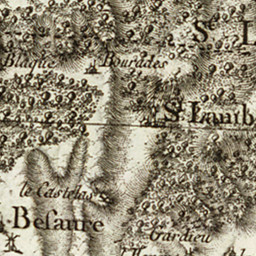 S L
Blaque Bourdes
S. Lamb
le Castelas
Besaure
Gardieu